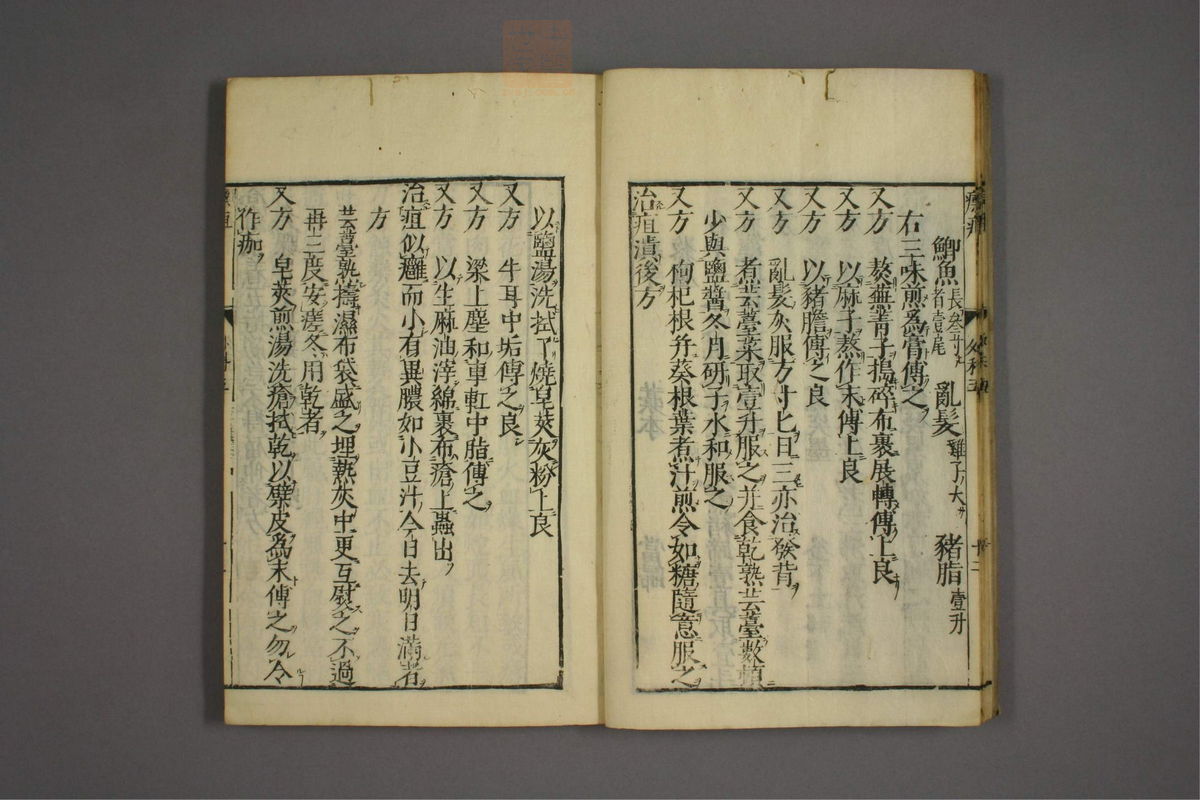 鯽魚長叁寸者壹尾　亂髮雞子大　豬脂壹升
右三味煎爲膏傅之
又方　熬蕪菁子搗碎布裹展轉傅上良
又方　以麻子熬作末傅上良
又方　以豬膽傅之良
又方　亂髮灰服方寸匕日三亦治發背
又方　煮芸薹菜取壹升服之并食乾熟芸薹數頓
少與鹽醬冬月研子水和服之
又方　枸杞根并葵根葉煮汁煎令如糖隨意服之
治疽潰後方
以鹽湯洗拭了燒皀莢灰粉上良
又方　牛耳中垢傅之良
又方　梁上塵和車釭中脂傅之
又方　以生麻油滓綿裹布瘡上蟲出
治疽似癰而小有異膿如小豆汁今日去明日滿者
方
芸薹熟擣濕布袋盛之埋熱灰中更互熨之不過
再三度安瘥冬用乾者
又方　皂莢煎湯洗瘡拭乾以檗皮爲末傅之勿令
作痂